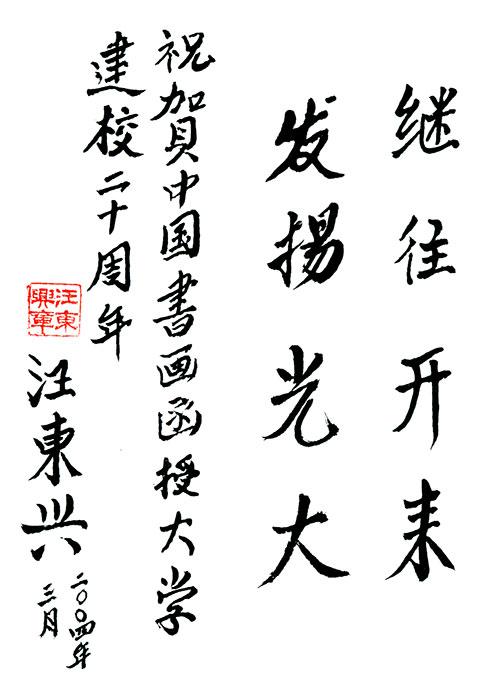 继往开来
发揚光大
祝贺中国書画函授大学
建校二十周年
汪東兴
二〇〇四年
三月
汪東
興章